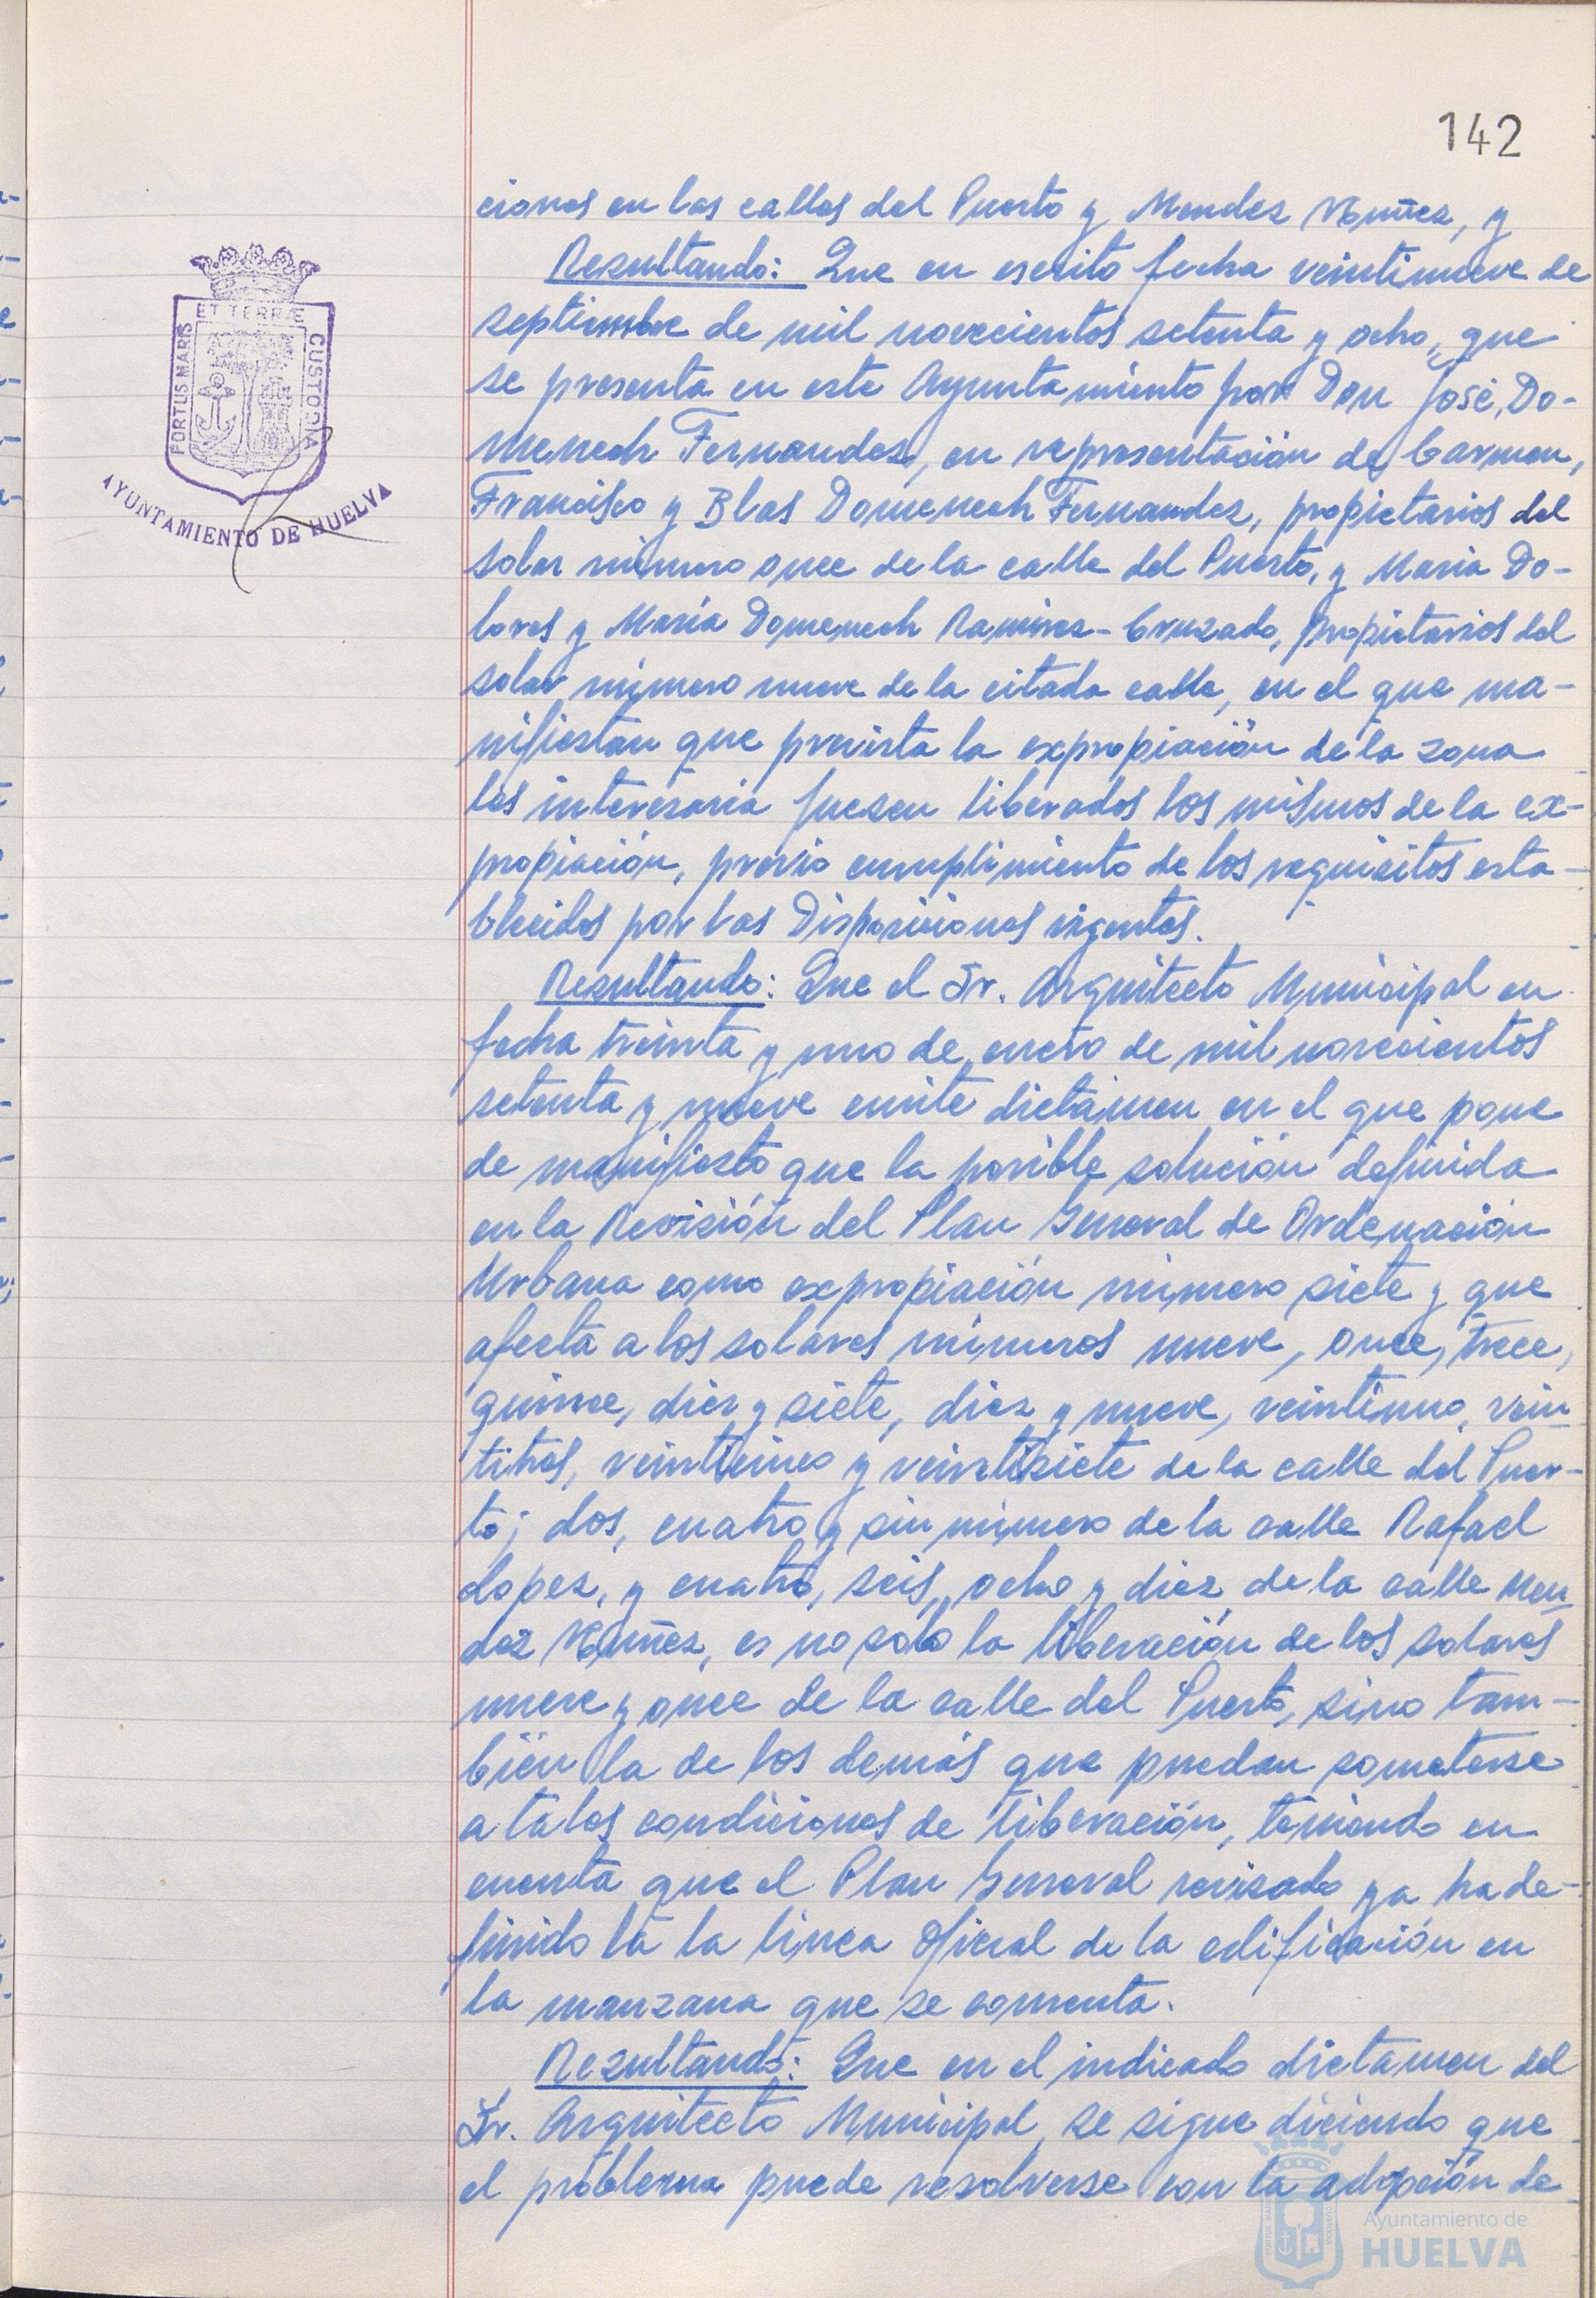 142
ciones en las calles del Puerto y Mendez Nuñez, y
Resultando: Que en escrito fecha veintinueve de
septiembre de mil novecientos setenta y ocho, que
se presenta en este Ayuntamiento por Don José Do-
menech Fernandez, en representación de Carmen,
Francisco y Blas Domenech Fernandez, propietarios del
solar número once de la calle del Puerto, y Maria Do-
lores y María Domenech Ramirez-Cruzado, propietarios del
solar número nueve de la citada calle, en el que ma-
nifiestan que prevista la expropiación de la zona
les interesaria fuesen liberados los mismos de la ex-
propiación, previo cumplimiento de los requisitos esta-
blecidos por las Disposiciones vigentes.
Resultando: Que el Sr. Arquitecto Municipal en
fecha treinta y uno de enero de mil novecientos
setenta y nueve emite dictámen en el que pone
de manifiesto que la posible solución definida
en la Revisión del Plan General de Ordenación
Urbana como expropiación número siete y que
afecta a los solares números nueve, once, trece,
quince, diez y siete, diez y nueve, veintiuno, vein
titres, veinticinco y veintisiete de la calle del Puer-
to; dos, cuatro y sin número de la calle Rafael
Lopez, y cuatro, seis, ocho y diez de la calle Men
dez Nuñez, es no solo la liberación de los solares
nueve y once de la calle del Puerto, sino tam-
bién la de los demás que puedan someterse
a tales condiciones de liberación, teniendo en
cuenta que el Plan General revisado ya ha de-
finido la la linea oficial de la edificación en
la manzana que se comenta.
Resultando: Que en el indicado dictamen del
Sr. Arquitecto Municipal, se sigue diciendo que
el problema puede resolverse con la adopción de
PORTUS MARIS ET TERRÆ CUSTODIA
AYUNTAMIENTO DE HUELVA
Ayuntamiento de
HUELVA